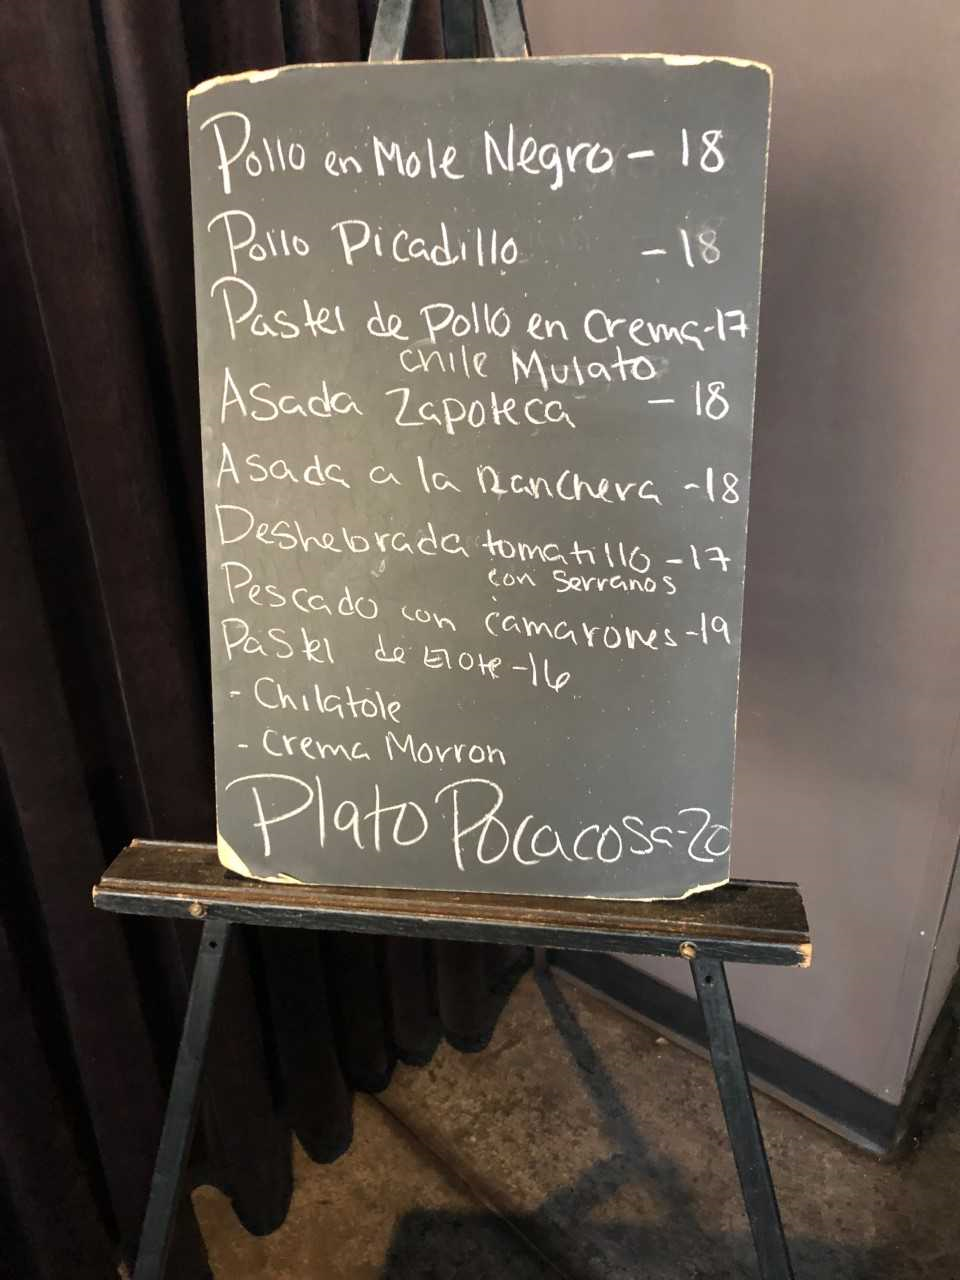 Pollo en Mole Negro - 18
Pollo Picadillo - 18
Pastel de Pollo en Crema - 17
Chile Mulato
Asada Zapoteca - 18
Asada a la Ranchera - 18
Deshebrada tomatillo - 17
con Serranos
Pescado con Camarones - 19
Pastel de Elote - 16
- Chilatole
- Crema Morron
Plato Pocacosa - 20